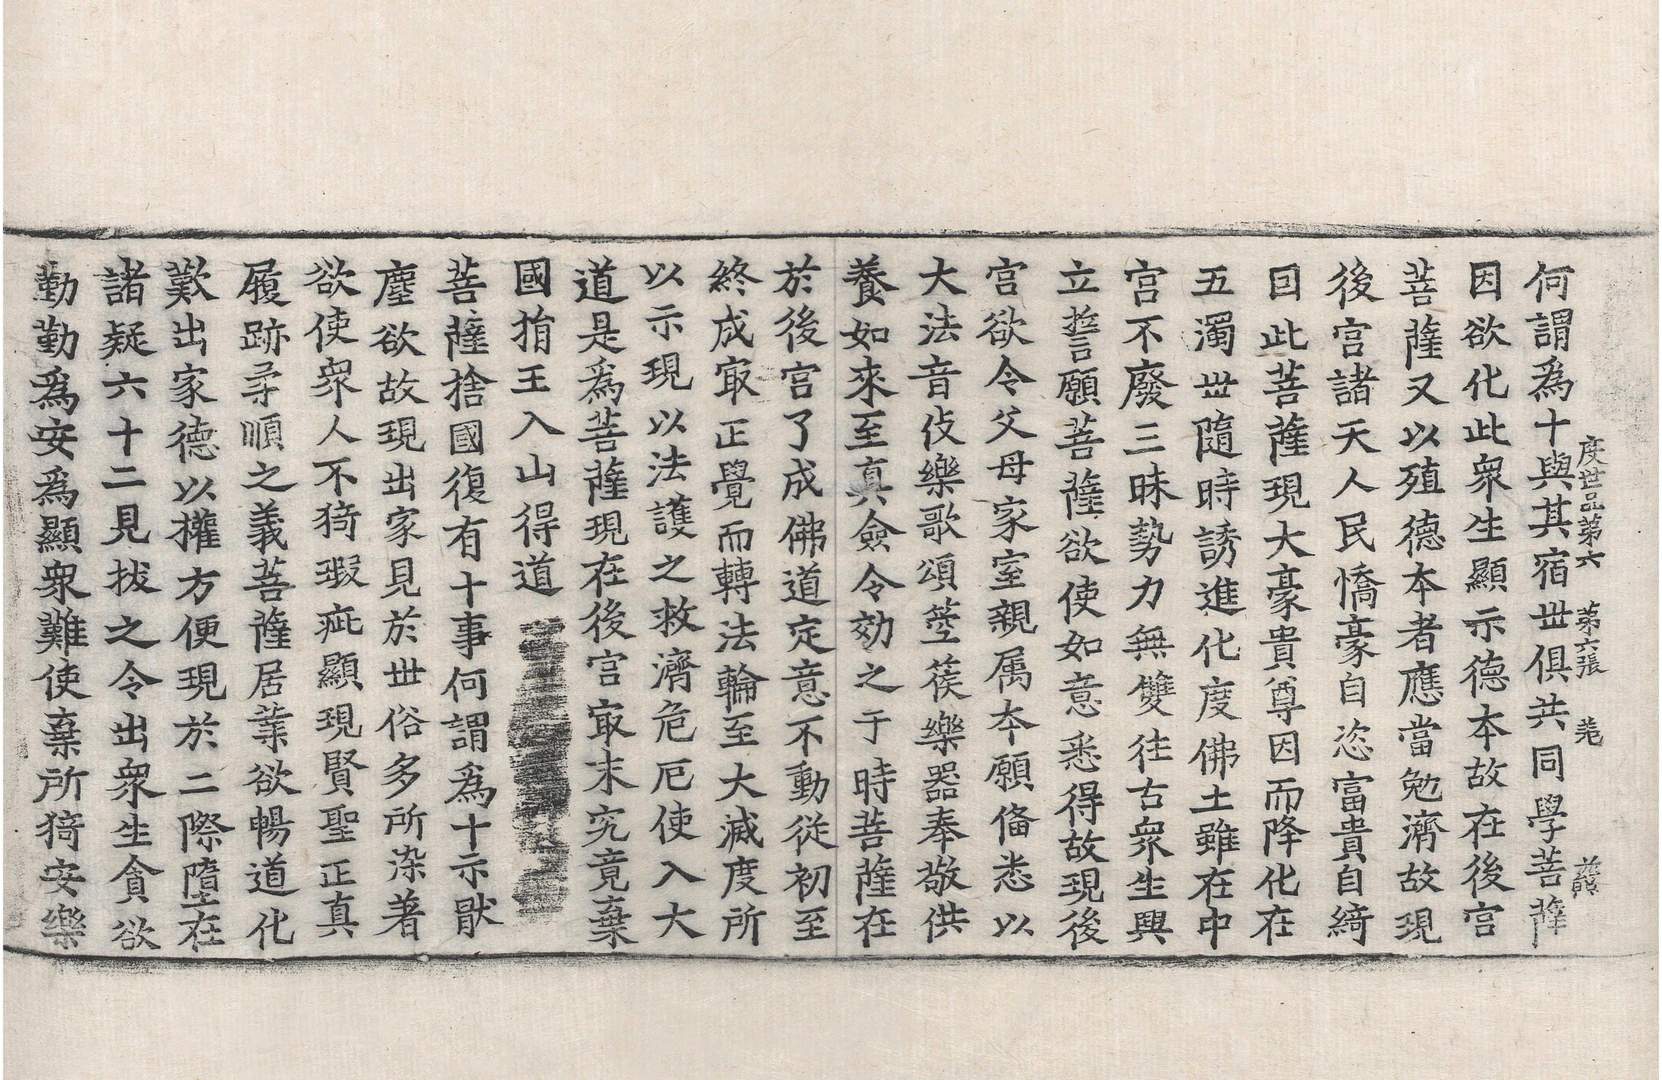 度世品第六　第六張　羌
何謂爲十與其宿丗俱共同學菩薩
因欲化此衆生顯示德本故在後宫
菩薩又以殖德本者應當勉濟故現
後宫諸天人民憍豪自恣冨貴自綺
囙此菩薩現大豪貴尊因而降化在
五濁丗隨時誘進化度佛土雖在中
宫不廢三昧勢力無雙往古衆生興
立誓願菩薩欲使如意悉得故現後
宫欲令父母家室親属夲願俻悉以
大法音伎樂歌頌箜篌樂器奉敬供
養如來至真僉令効之于時菩薩在
於後宫了成佛道定意不動從初至
終成㝡正覺而轉法輪至大滅度所
以示現以法護之救濟危厄使入大
道是爲菩薩現在後宫㝡末究竟棄
國捐王入山得道
菩薩捨國復有十事何謂爲十示猒
塵欲故現出家見於丗俗多所染著
欲使衆人不猗瑕疵顯現賢聖正真
履跡㝷順之義菩薩居業欲暢道化
歎出家德以權方便現於二際墮在
諸疑六十二見拔之令出衆生貪欲
勤勤爲安爲顯衆難使棄所猗安樂